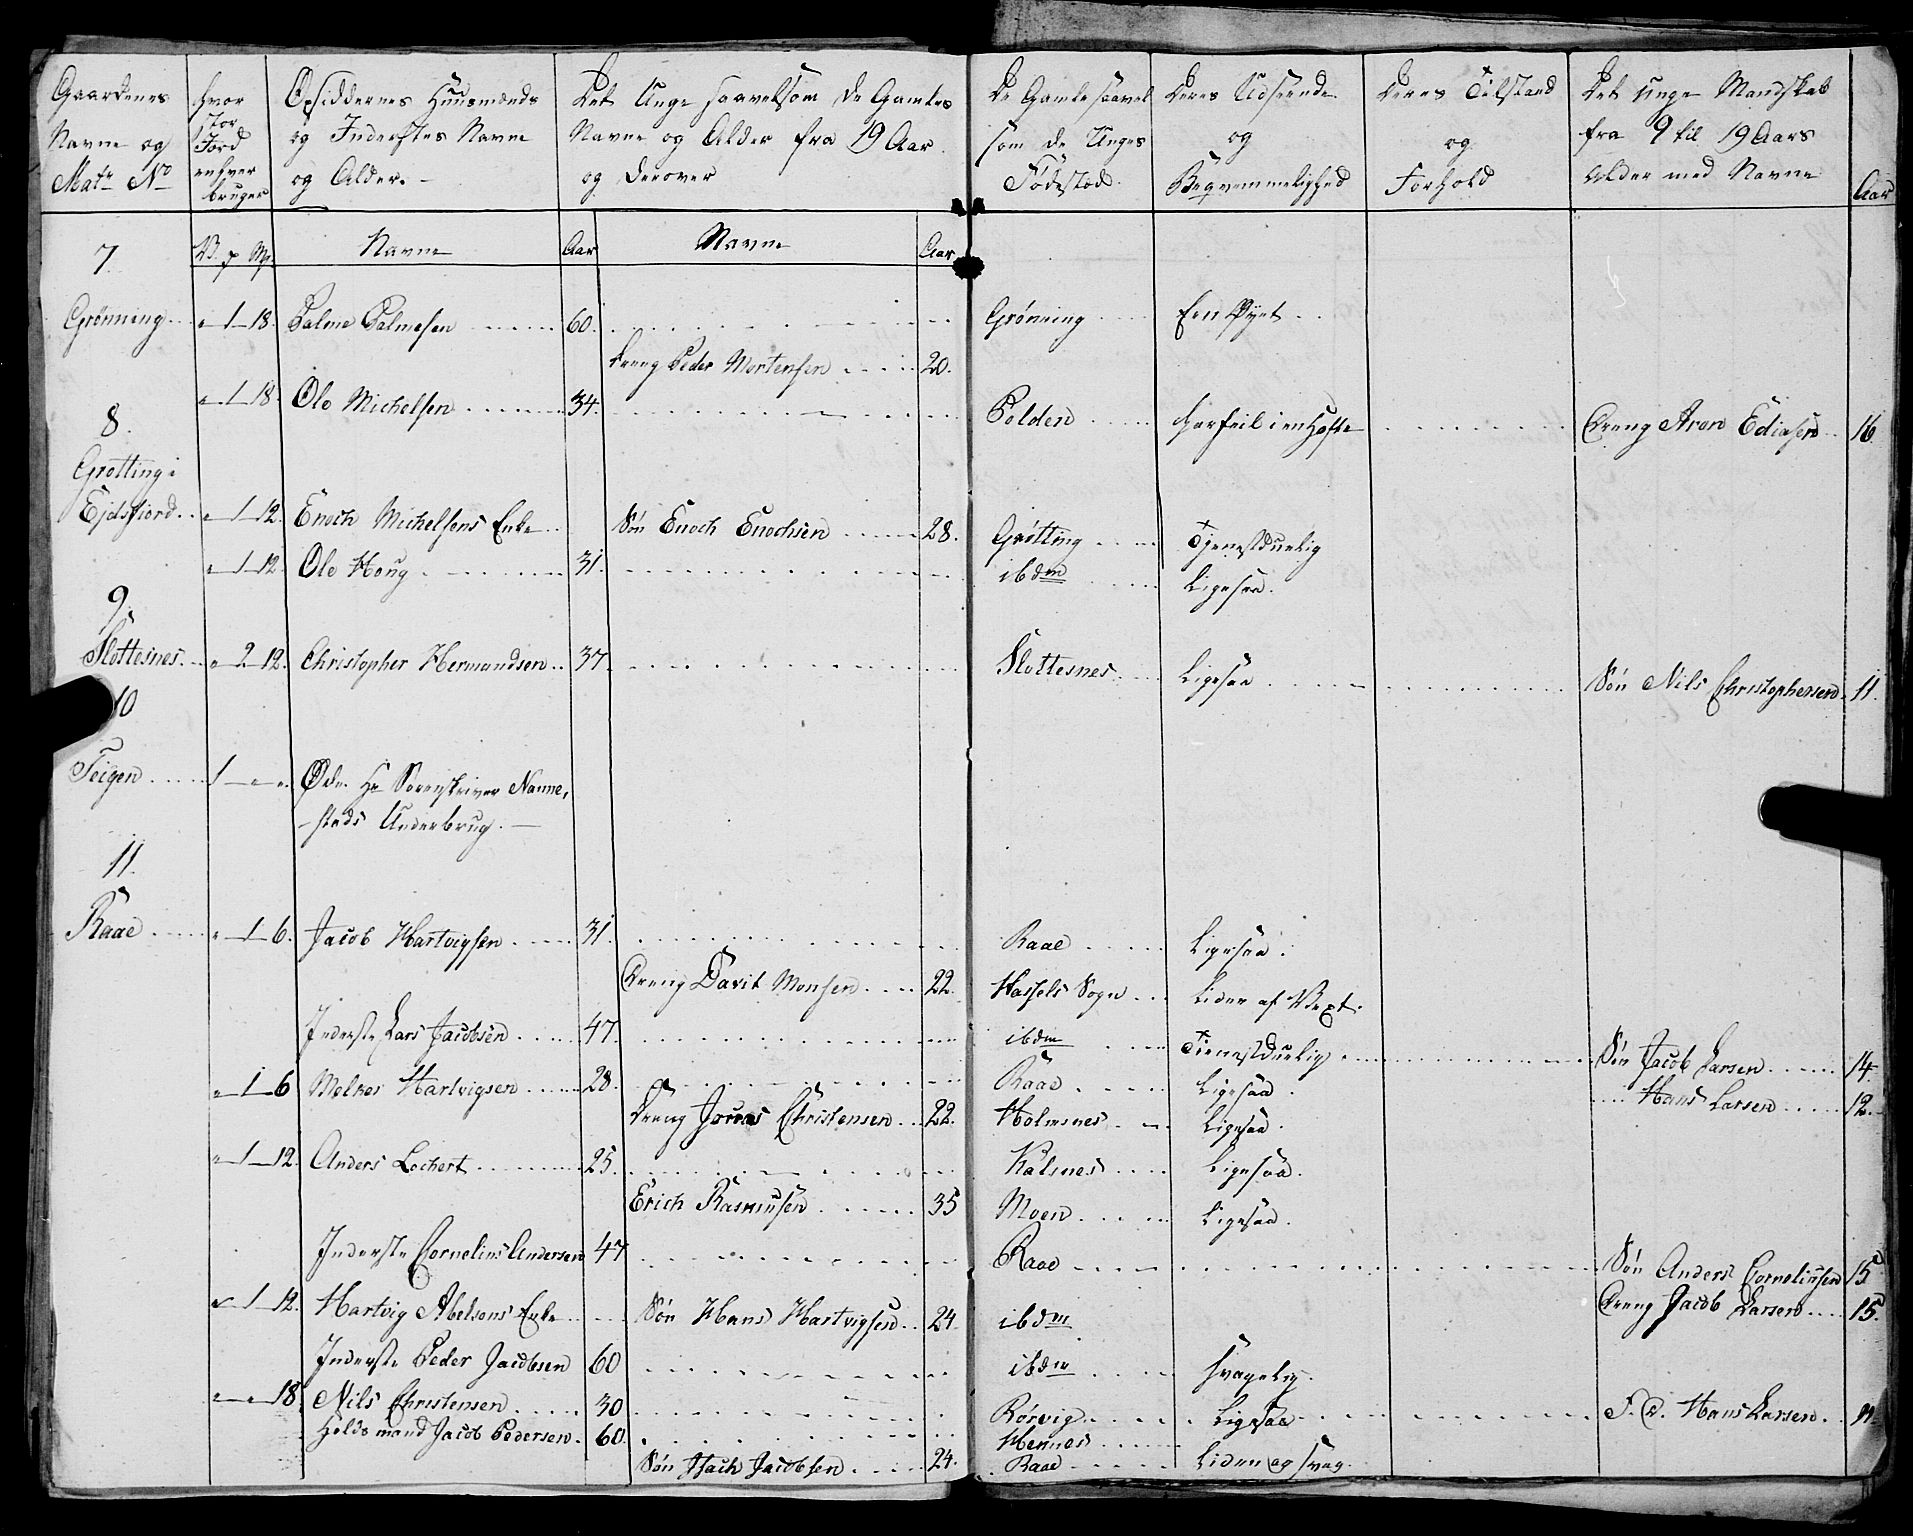 Gaardenes Navne og Matr No
Hvor stor Jord enhver bruger
Opsiddernes Huusmænds og Inderstes Navne og Alder.
Det Unge saavelsom de Gamles Navne og Alder fra 19 Aar og derover
De Gamle saavel som de Unges Fødested
Deres Udseende og Beqvemmelighed
Deres Tilstand og Forhold
Det unge Mandskab fra 9 til 19 Aars Alder med Navne
Aar
V. p Mk. Navne Aar Navne Aar
7.
Grønning " 1 18. Palme Palmesen 60. Grønning Een Øyet
Dreng Peder Mortensen 20.
" 1 18. Ole Michelsen 34. Polden har feil i en Hofte Dreng Aron Ediasen 16
8.
Grøtting i
Ejdsfiord " 1 12. Enoch Michelsens Enke Søn Enoch Enochsen 28. Grøtting Tjenestduelig
" 1 12. Ole Houg 31. ibdm Ligesaa.
9.
Slottesnes. " 2 12. Christopher Hermandsen 37. Slottesnes Ligesaa Søn Nils Christophersen 11.
10
Teigen 1 " ". Øde. Hr Sorenskriver Nanne-
stads Underbrug.
11.
Raae " 1 6. Jacob Hartvigsen 31. Raae Ligesaa.
Dreng David Monsen 22. Hassels Sogn Liden af Vext.
Inderste Lars Jacobsen 47. ibdm Tienestduelig Søn Jacob Larsen 14.
" 1 6 Melkes Hartvigsen 28. Raae Ligesaa. Hans Larsen 12.
Dreng Jonas Christensen 22. Holmsnes Ligesaa.
" 1 12. Anders Lochert 25. Kalsnes Ligesaa.
Erich Rasmussen 35 Moen Ligesaa.
Inderste Cornelius Andersen 47 Raae Søn Anders Corneliussen 15
" 1 12. Hartvig Abelsens Enke Søn Hans Hartvigsen 24 ibdm Dreng Jacob Larsen 15.
Inderste Peder Jacobsen 60 ibdm Svagelig.
" " 18 Nils Christensen 30 Rørvig Ligesaa F. D. Hans Larsen 11.
Holdsmand Jacob Pedersen 60. Hennes
Søn Isach Jacobsen 24. Raae Liden og svag.